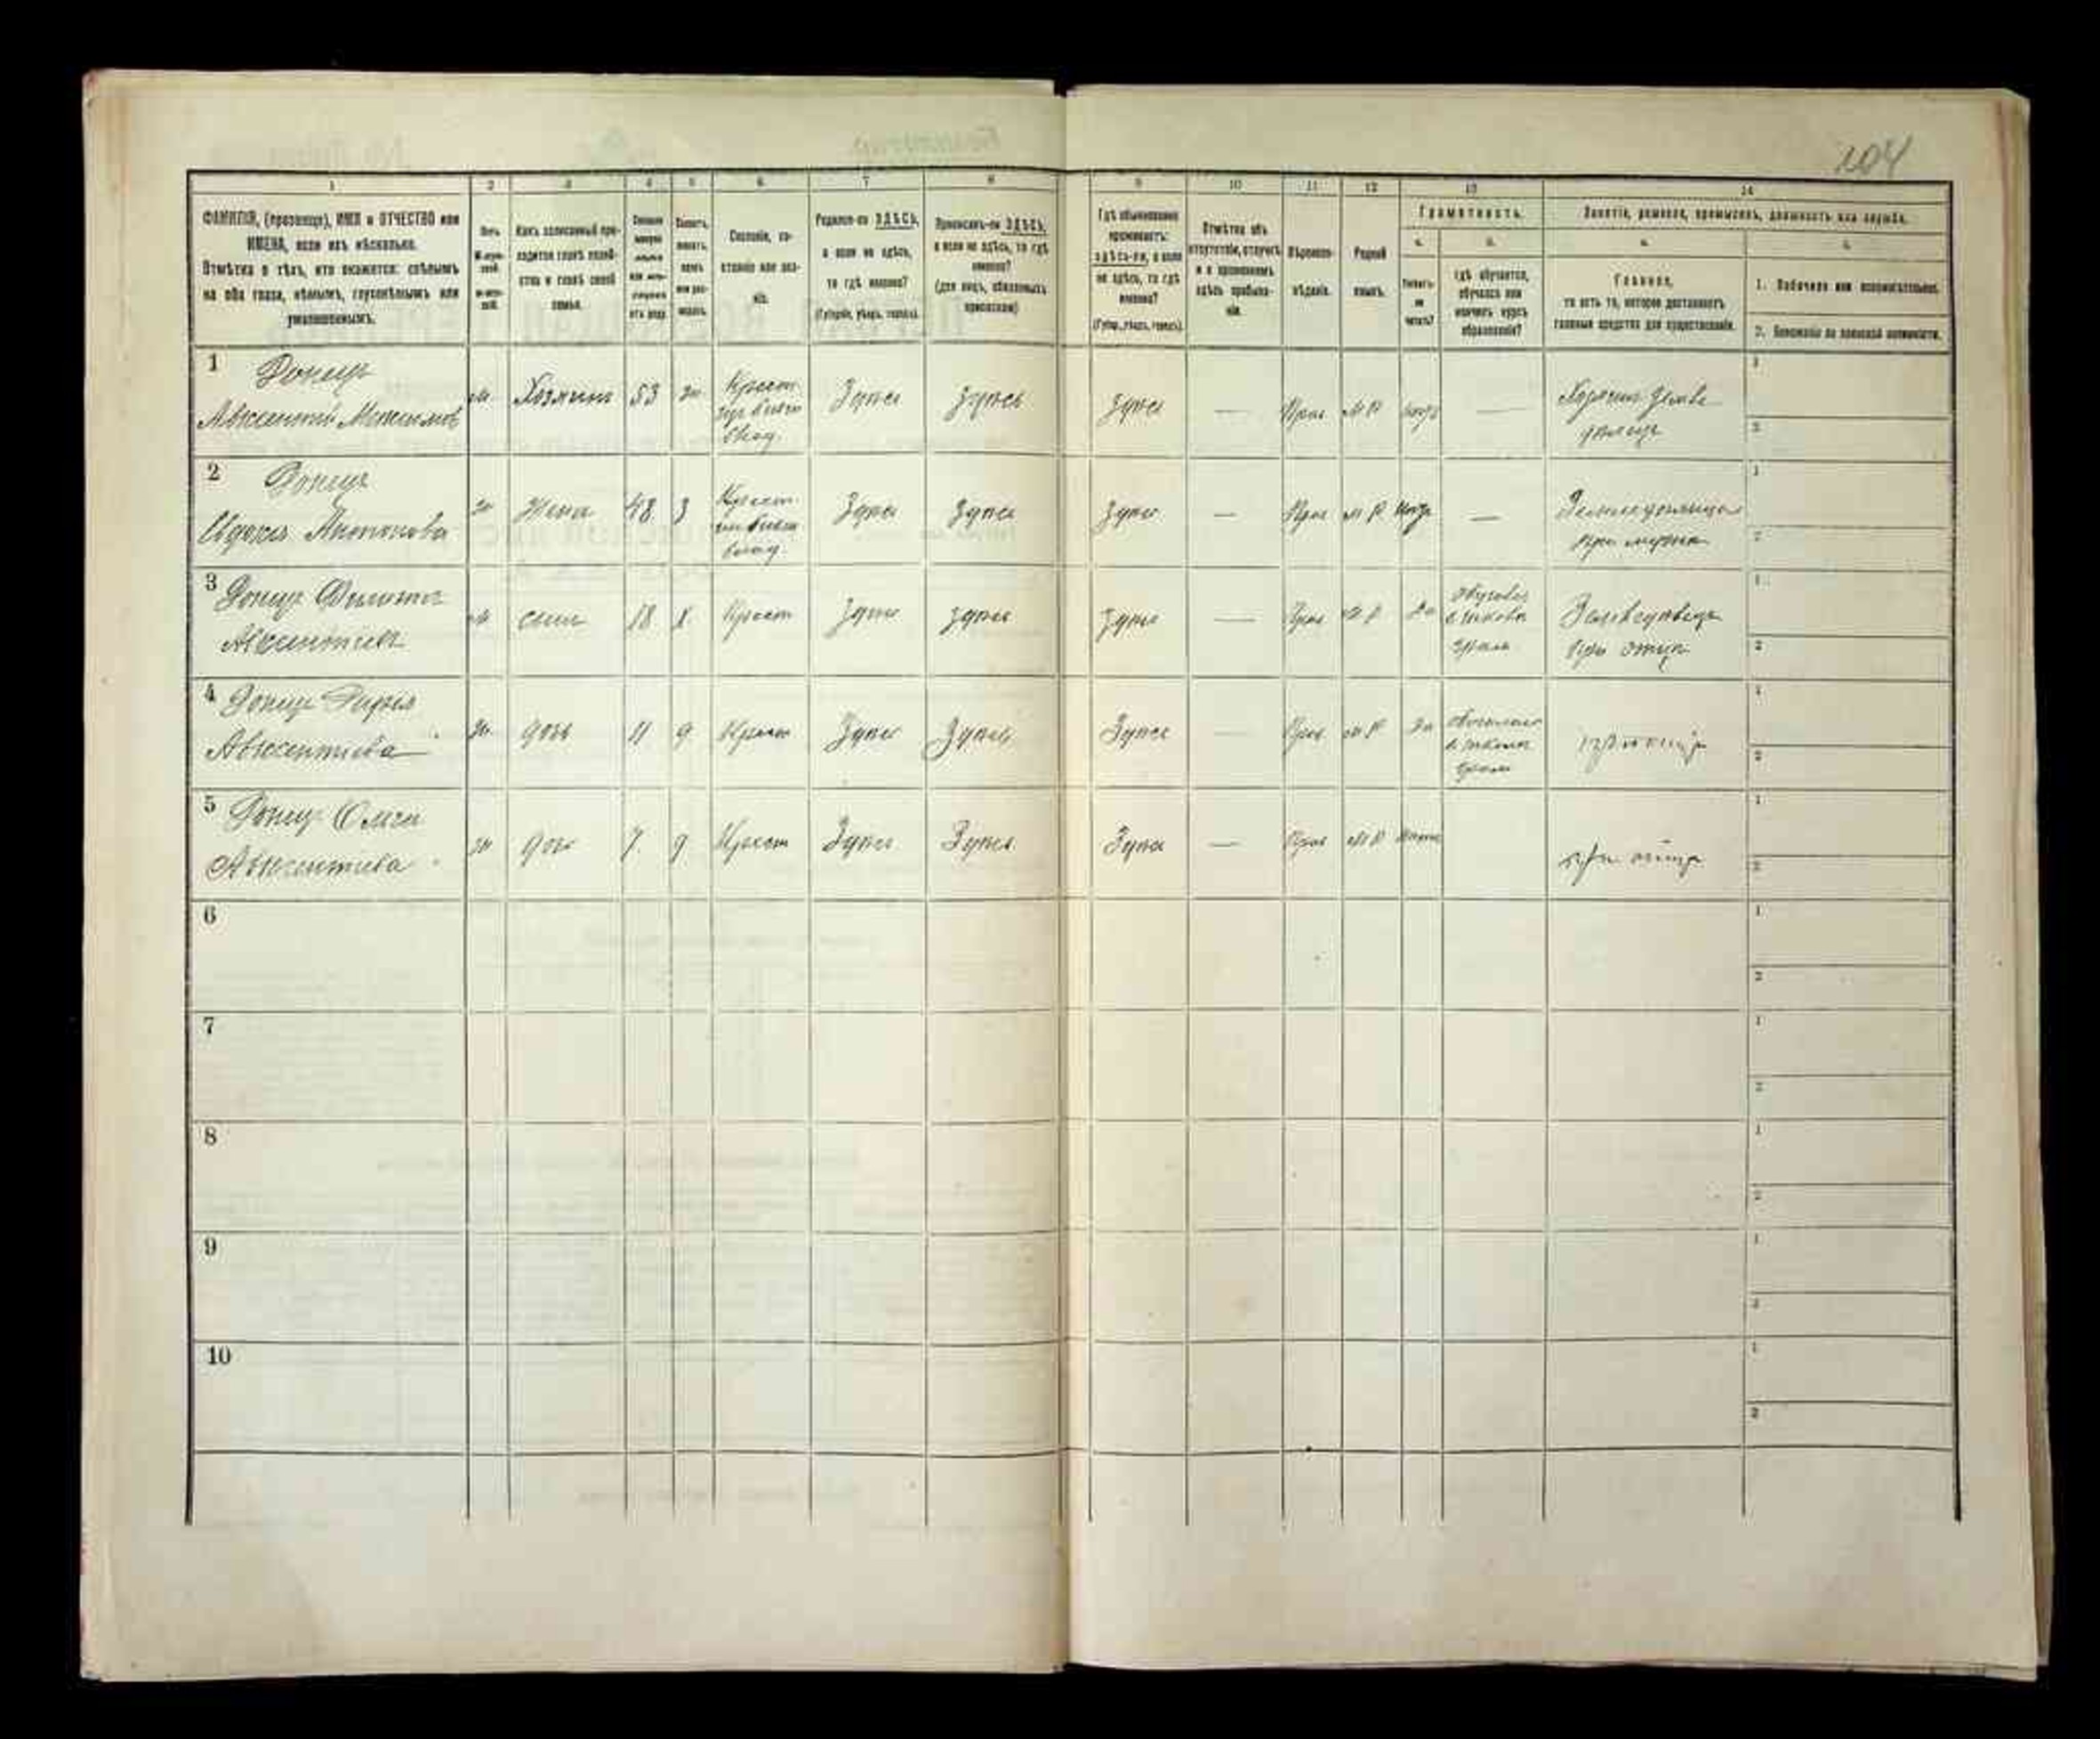 104
1 2 3 4 5 6 7 8 9 10 11 12 13 14
ФАМИЛІЯ, (прозвище), ИМЯ и ОТЧЕСТВО или
ИМЕНА, если ихъ нѣсколько.
Отмѣтка о тѣхъ, кто окажется: слѣпымъ
на оба глаза, нѣмымъ, глухонѣмымъ или
умалишеннымъ.
Полъ.
М-муж-
ской.
Ж-жен-
скій.
Какъ записанный при-
ходится главѣ хозяй-
ства и главѣ своей
семьи.
Сколько
минуло
лѣтъ
или мѣ-
сяцевъ
отъ роду.
Холостъ,
женатъ,
вдовъ
или раз-
веденъ.
Сословіе, со-
стояніе или зва-
ніе.
Родился-ли ЗДѢСЬ,
а если не здѣсь,
то гдѣ именно?
(Губернія, уѣздъ, городъ).
Приписанъ-ли ЗДѢСЬ,
а если не здѣсь, то гдѣ
именно?
(для лицъ, обязанныхъ
припискою)
Гдѣ обыкновенно
проживаетъ:
здѣсь-ли, а если
не здѣсь, то гдѣ
именно?
(Губер., уѣздъ, городъ).
Отмѣтка объ
отсутствіи, отлучкѣ
и о временномъ
здѣсь пребыва-
ніи.
Вѣроиспо-
вѣданіе.
Родной
языкъ.
Грамотность.
а.
Умѣетъ-
ли
читать?
б.
гдѣ обучается,
обучался или
кончилъ курсъ
образованія?
Занятіе, ремесло, промыселъ, должность или служба.
а.
Главное,
то есть то, которое доставляетъ
главныя средства для существованія.
б.
1. Побочное или вспомогательное.
2. Положеніе по воинской повинности.
1 Донец
Авксентий Максимов
м Хозяин 53 ж Крест
Здесь Здесь Здесь — Прав М Р —
1
2
2 Донец
Евдокия Антонова
ж Жена 48 З Крест
Здесь Здесь Здесь — Прав М Р —
при муже
1
2
3 Донец Филипп
Авксентиев
м сын 18 Х Крест Здесь Здесь Здесь — Прав М Р да
при отце
1
2
4 Донец Дарья
Авксентиева
ж дочь 11 д Крест Здесь Здесь Здесь — Прав М Р да
при отце
1
2
5 Донец Олга
Авксентиева
ж дочь 7 д Крест Здесь Здесь Здесь — Прав М Р
при отце
1
2
6
1
2
7
1
2
8
1
2
9
1
2
10
1
2